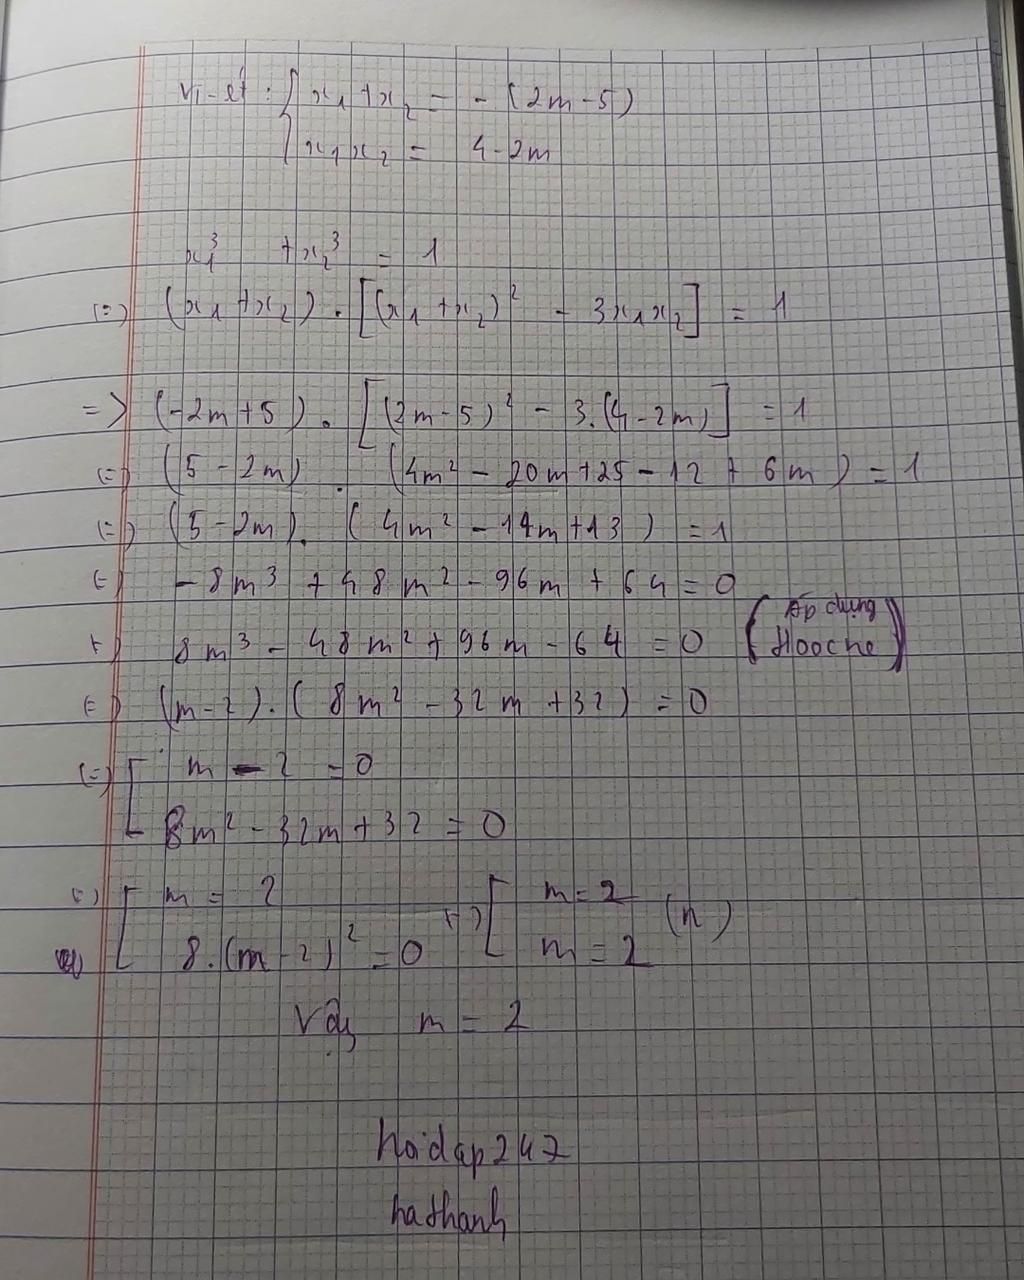 Vi-ét: { x₁ + x₂ = - (2m - 5)
x₁x₂ = 4 - 2m
x₁³ + x₂³ = 1
(=) (x₁ + x₂) . [(x₁ + x₂)² - 3x₁x₂] = 1
=> (-2m + 5) . [(2m - 5)² - 3.(4 - 2m)] = 1
(=) (5 - 2m) . (4m² - 20m + 25 - 12 + 6m) = 1
(=) (5 - 2m) . (4m² - 14m + 13) = 1
(=) - 8m³ + 48m² - 96m + 64 = 0
(=) 8m³ - 48m² + 96m - 64 = 0 (Áp dụng Hoocne)
(=) (m - 2) . (8m² - 32m + 32) = 0
(=) [ m - 2 = 0
8m² - 32m + 32 = 0
(=) [ m = 2 (=) [ m = 2 (n)
8.(m - 2)² = 0 m = 2
Vậy m = 2
hoidap247
hathanh